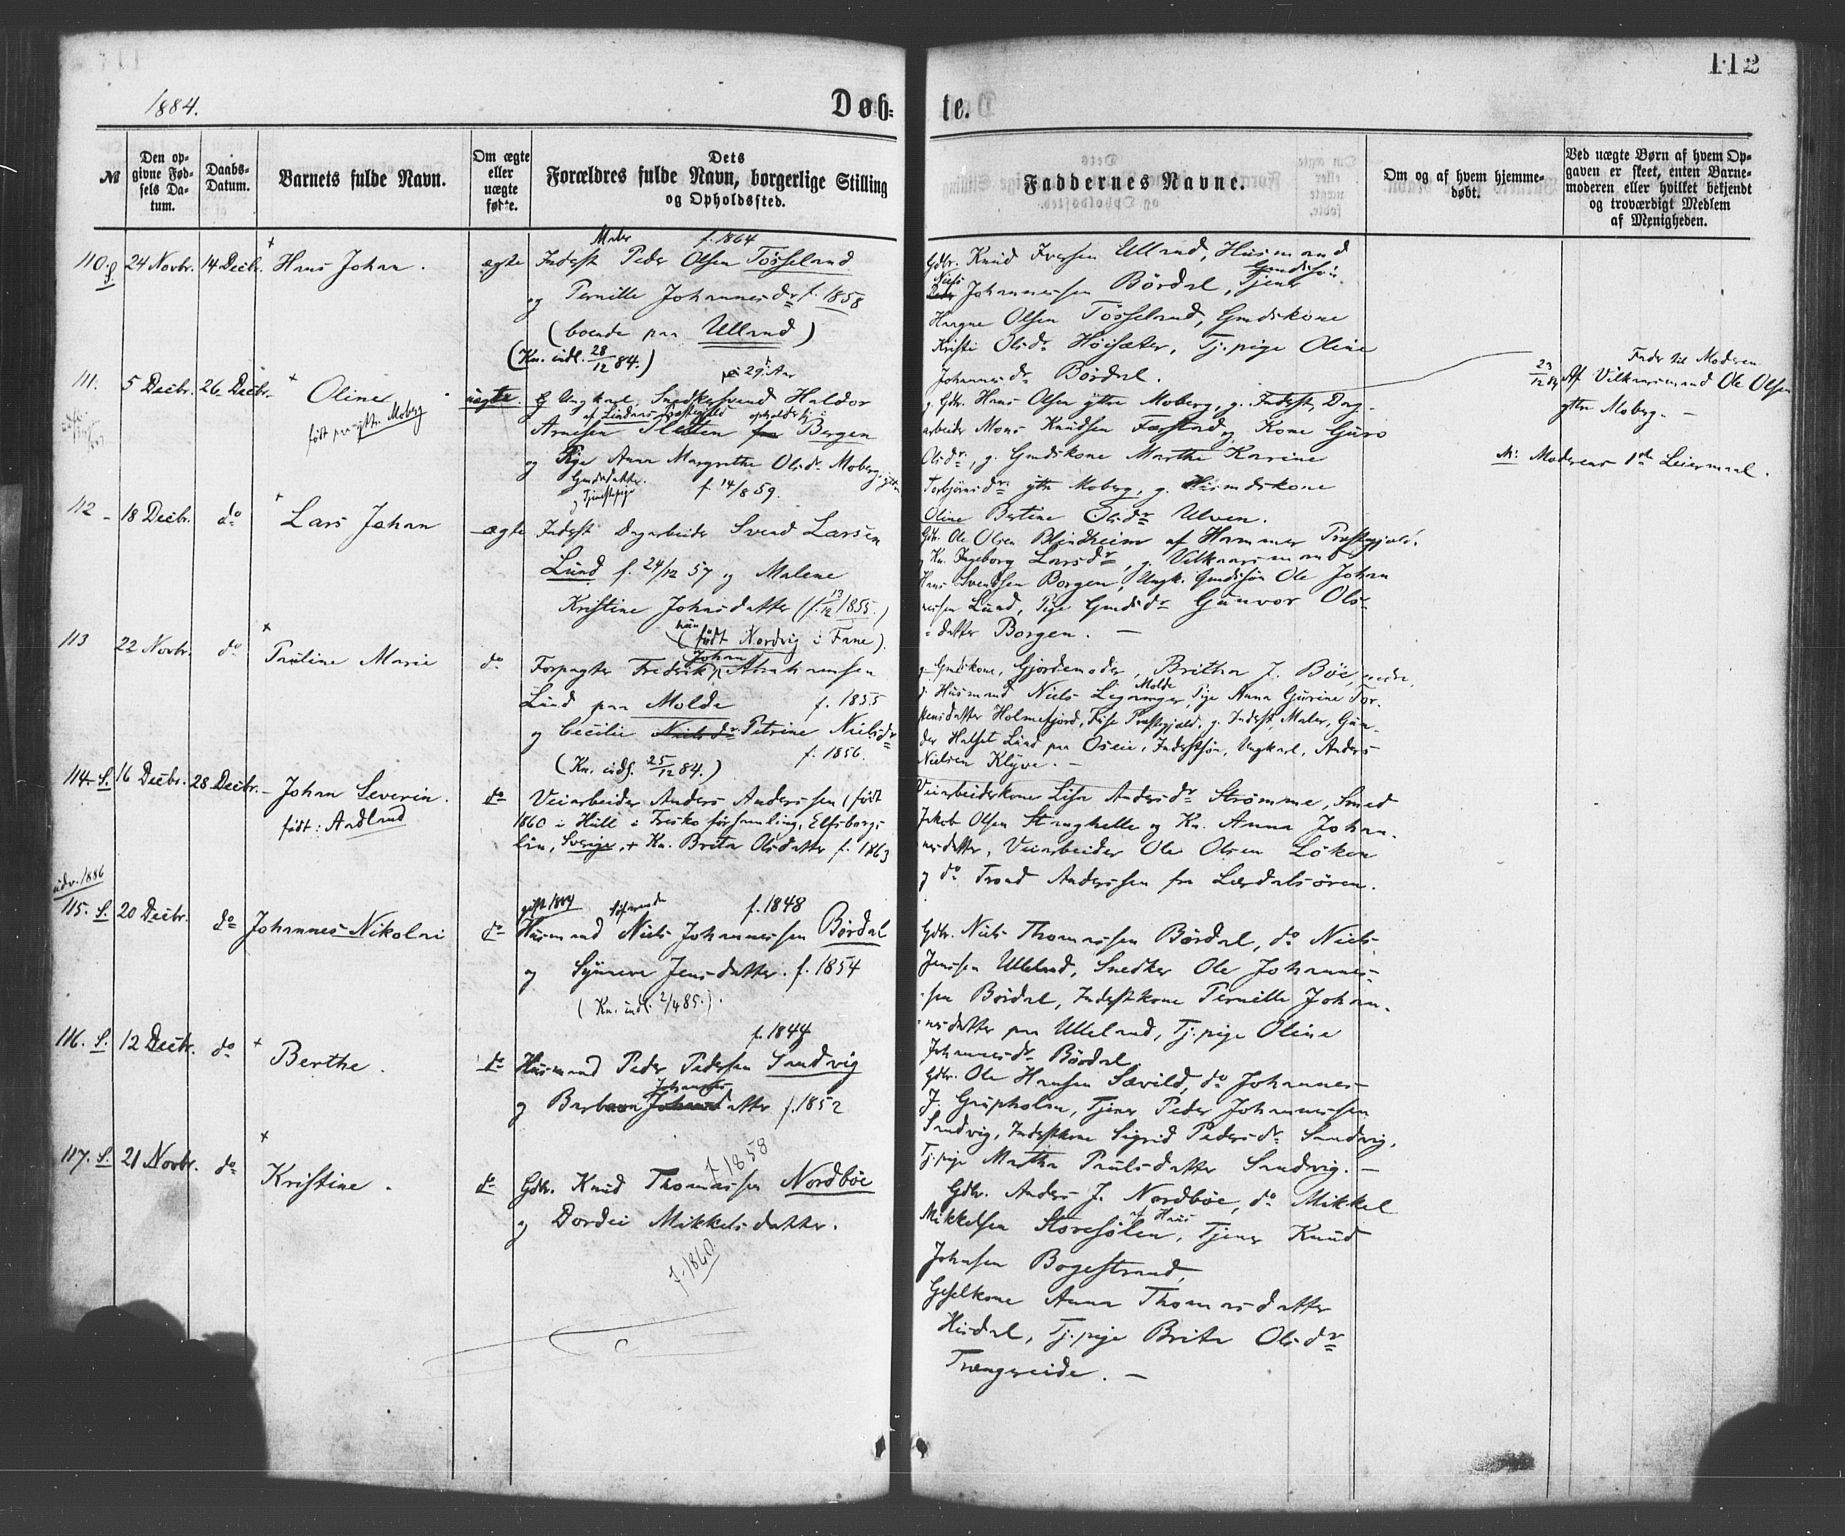 112
1884.
Døb-
te.
№
Den op-
givne Fød-
sels Da-
tum.
Daabs-
Datum.
Barnets fulde Navn.
Om ægte
eller
uægte
fødte.
Dets
Forældres fulde Navn, borgerlige Stilling
og Opholdssted.
Faddernes Navne.
Om og af hvem hjemme-
døbt.
Ved uægte Børn af hvem Op-
gaven er skeet, enten Barne-
moderen eller hvilket bekjendt
og troværdigt Medlem
af Menigheden.
110. S. 24 Novbr. 14 Decbr. Hans Johan. ægte
Maler f. 1864
Inderst Peder Olsen Tøsseland
og Pernille Johannesdr f. 1858
(boende paa Ulland)
(Kn. indl. 28/12 84.)
Gdbr. Knud Iversen Ulland, Husmand
Gmdssøn
Niels Johannessen Bördal, Tjener
Haagne Olsen Tösseland, Gmdskone
Kristi Olsdr Höisæter, Tj.pige Oline
Johannesdr Bördal.
111. 5 Decbr. 26 Decbr. Oline uægte.
født paa ytre Moberg
29 Aar
Ungkarl, Snedkersvend Haldor
af Lindaas Præstegjeld opholdt sig i
Arnesen Sletten Bergen
og Pige Anna Margrethe Olsdr Moberg ytre
Gmdsdatter. f. 14/8 59.
Tjenestepige
g. Gdbr. Hans Olsen ytre Moberg, g. Inderst, Dag-
arbeider Mons Knudsen Færstad og Kone Guro
Olsdr, g. Gmdskone Marthe Karine
Torbjörnsdr ytre Moberg, g. Husmdskone
Oline Bertine Olsdr Ulven.
23/12 84 Af Fader til Moderen
Vilkaarsmand Ole Olsen
ytre Moberg. —
M: Moderens 1ste Leiermaal.
112 - 18 Decbr. do Lars Johan ægte
Inderst Dagarbeider Svend Larsen
Lund f. 24/12 57 og Malene
Kristine Johnsdatter (f. 13/12 1855.)
(hun født Nordvig i Fane).
Gdbr. Ole Olsen Blindheim af Hammer Præstegjæld.
og Kn. Ingeborg Larsdr, g. Vilkaarsmand
Hans Svendsen Borgen, Ungk. Gmdssøn Ole Johan
nessen Lund, Pige Gmdsdr Gunvor Ols-
datter Borgen. —
113 22 Novbr. do Pauline Marie do
Johan
Forpagter Fredrik Abrahamsen
Lund paa Molde f. 1855
og Cecilie Petrine Nielsdr
f. 1856.
(Kn. indl. 25/12 84.)
g. Gmdskone, Gjordemoder, Britha J. Böe, nedre,
Molde
g. Husmand Niels Leganger, Pige Anna Gurine Tor-
stensdatter Holmefjord, Fuse Præstegjæld, g. Inderst, Maler, Gun-
der Halset Lund paa Osøen, Inderstsøn, Ungkarl, Anders
Nielsen Klyve. —
114 S. 16 Decbr. 28 Decbr. - Johan Severin. do
født: Aadland
Veiarbeider Anders Andersen (født
1860 i Hull i Tresko församling, Elfsborgs
län, Sverige, + Kn. Brita Olsdatter f. 1863
Veiarbeiderkone Lisa Andersdr Strömme, Smed
Jakob Olsen Stanghelle og Kn. Anna Johan-
nesdatter, Veiarbeider Ole Olsen Löken
og do Trond Andersen fra Lærdalsøren.
udv. 1886
115. S. 20 Decbr. do Johannes Nikolai do
gift 1884 f. 1848
Husmand Niels Johannessen Bördal
og Synneve Jensdatter. f. 1854
(Kn. indl. 2/4 85.).
Gdbr. Niels Thomassen Bördal, do Niels
Jenssen Ulleland, Snedker Ole Johannes-
sen Bördal, Inderstkone Pernille Johan-
nesdatter paa Ulleland, Tj.pige Oline
Johannesdr Bördal.
116. S. 12 Decbr. do Berthe. do
f. 1844
Husmand Peder Pedersen Sandvig
Johannes
og Barbara datter f. 1852
Gdbr. Ole Hansen Sævild, do Johannes-
J. Gripholen, Tjener Peder Johannessen
Sandvig, Inderstkone Sigrid Pedersdr Sandvig,
Tj.pige Martha Paulsdatter Sandvig. —
117. S. 21 Novbr. do Kristine. do
f. 1858
Gdbr. Knud Thomassen Nordböe
og Dordei Mikkelsdatter.
f. 1860
Gdbr. Anders J. Nordböe, do Mikkel
Mikkelsen Storesölen, Tjener Knud
Johnsen Bogestrand,
Geselkone Anna Thomasdatter
Husdal, Tj.pige Brita Olsdr
Trængereide. —